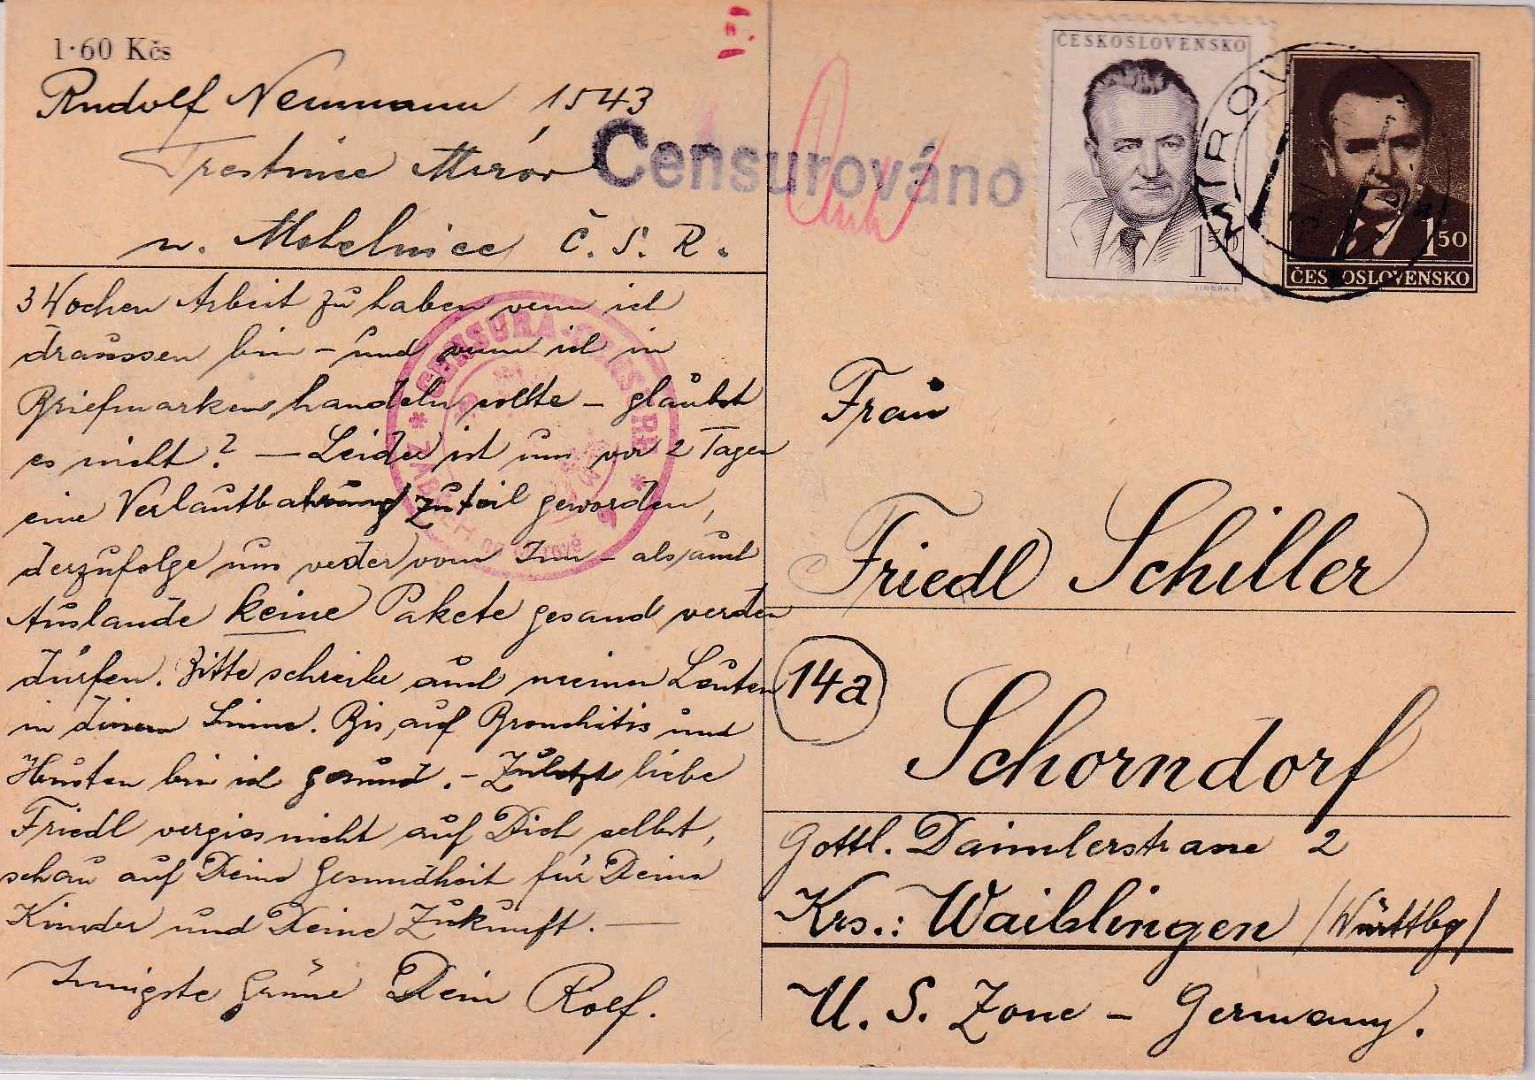 1·60 Kčs
Rudolf Neumann 1543
Trestnice Mírov
n. Mohelnice Č. S. R.
Censurováno
ČESKOSLOVENSKO
1 50
MÍROV
1 50
ČESKOSLOVENSKO
CENSURA-CENSURE
3 Wochen Arbeit zu haben wenn ich
draussen bin – und wenn ich in
Briefmarken handeln sollte – glaubst
es nicht? – Leider ist uns vor 2 Tagen
eine Verlautbahrung zuteil geworden,
derzufolge uns weder vom Inn – als auch
Auslande keine Pakete gesand werden
dürfen. Bitte schreibe auch meinen Leuten
in diesem Sinne. Bis auf Bronchitis und
Husten bin ich gesund. – Zuletzt liebe
Friedl vergiss nicht auf Dich selbst,
schau auf Deine Gesundheit für Deine
Kinder und Deine Zukunft. —
Innigste Grüsse Dein Rolf.
Frau
Friedl Schiller
14a
Schorndorf
Gottl. Daimlerstrasse 2
Krs.: Waiblingen /Württbg/
U. S. Zone – Germany.